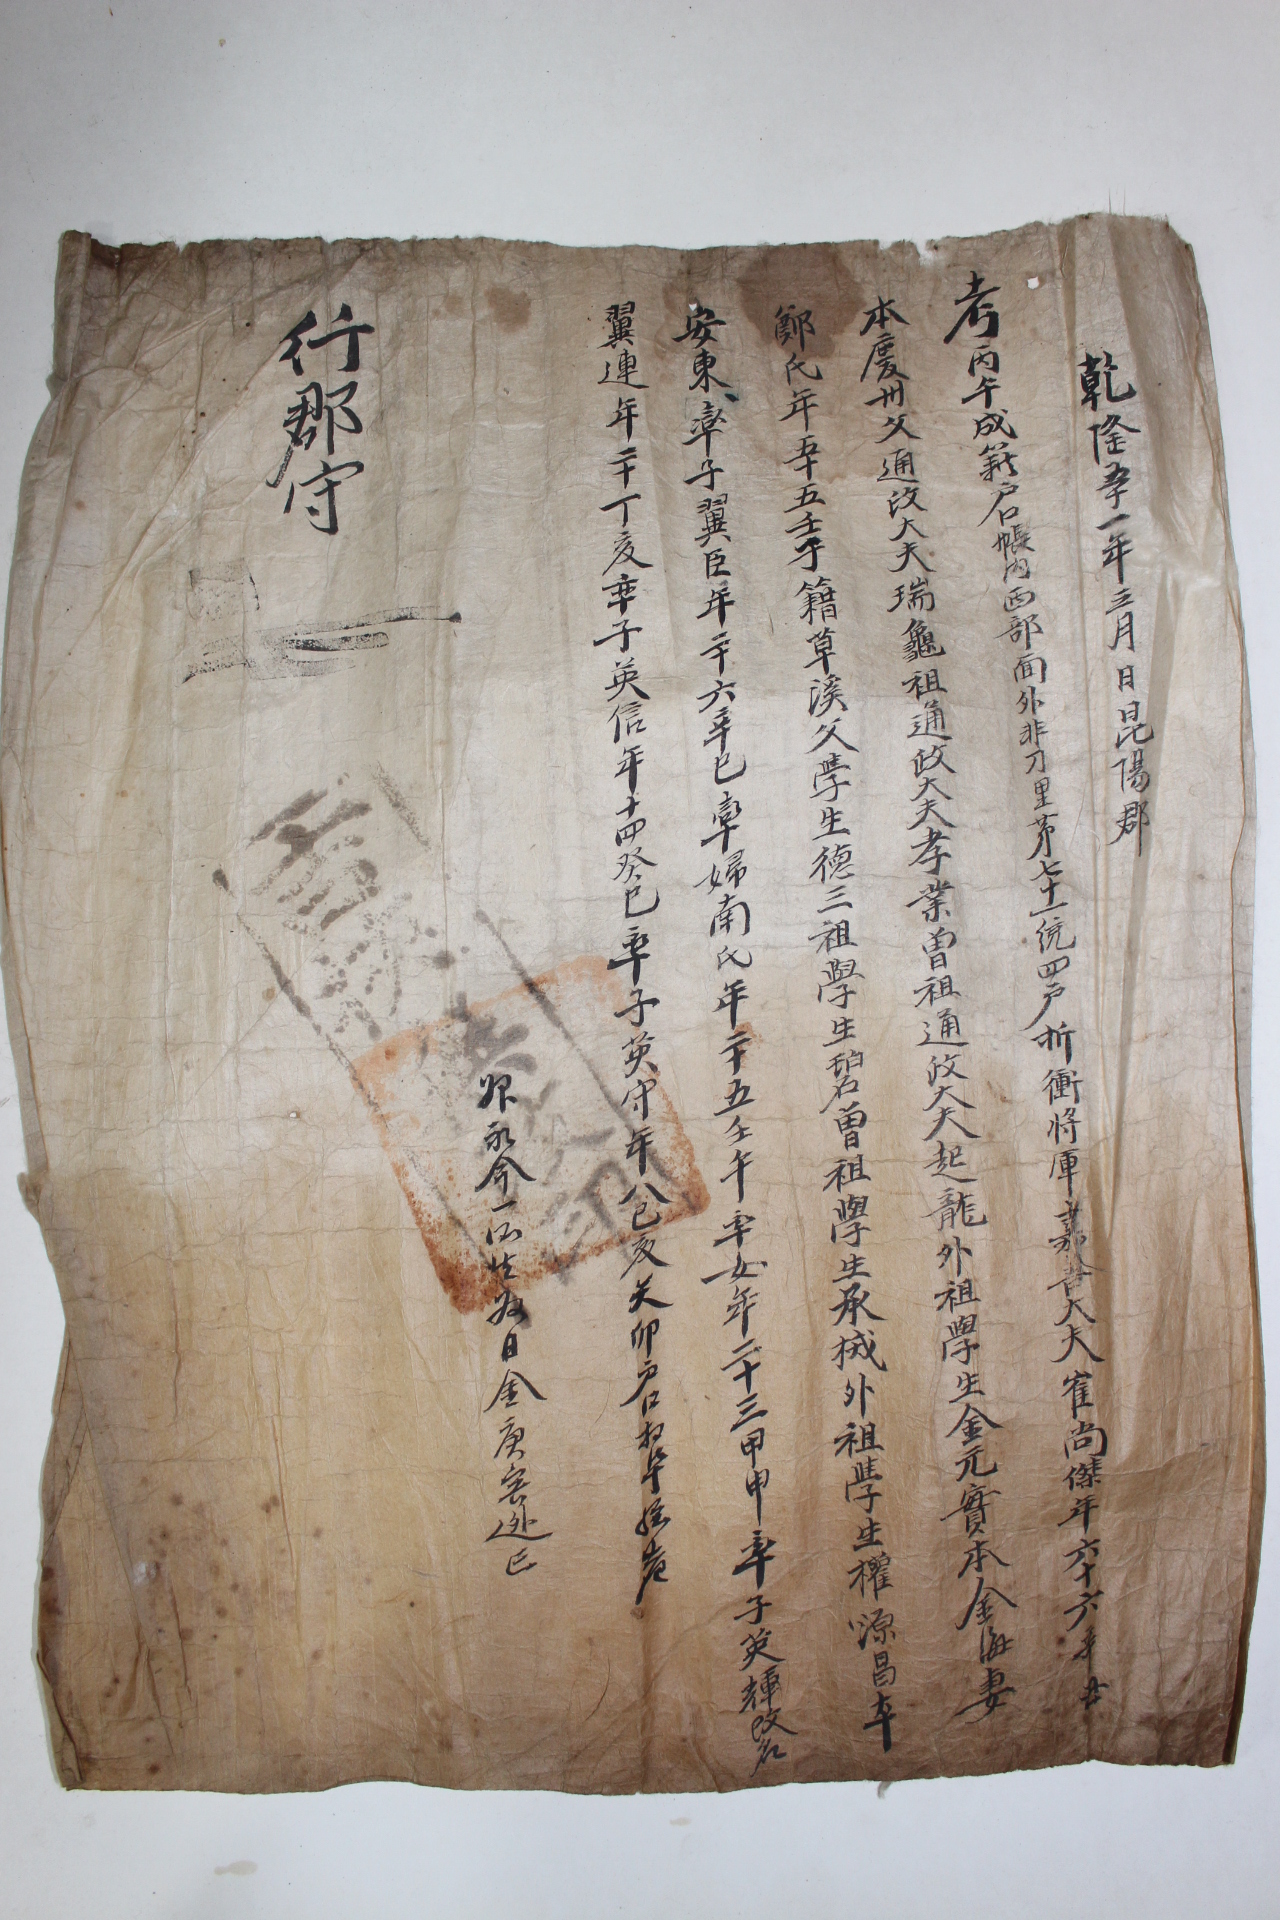 乾隆五十一年 三月 日 昆陽郡
考丙午成籍戶口帳內西部面外非刀里第七十一統四戶折衝將軍嘉善大夫崔尚傑年六十六辛丑
本慶州父通政大夫瑞龜祖通政大夫孝業曾祖通政大夫起龍外祖學生金元寶本金海妻
鄭氏年五十五壬子籍草溪父學生德三祖學生碧曾祖學生承掝外祖學生權源昌本
安東率子翼臣年二十六辛巳率婦南氏年二十五壬午率女年二十三甲申率子英輝改名
翼連年二十丁亥率子英信年十四癸巳率子英守年八己亥癸卯戶口相準
日金庚
行郡守